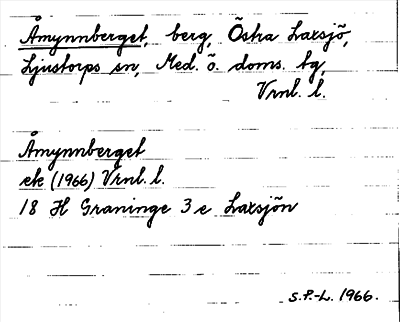 Åmynnberget, berg, Östra Laxsjö,
Ljustorps sn, Med. ö. doms. tg,
Vrnl. l.
Åmynnberget
ek (1966) Vrnl. l.
18 H Graninge 3 e Laxsjön
S.P.-L. 1966.